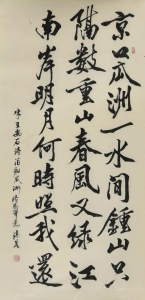 京口瓜洲一水間鍾山只
隔數重山春風又綠江
南岸明月何時照我還
王安石詩泊船瓜洲